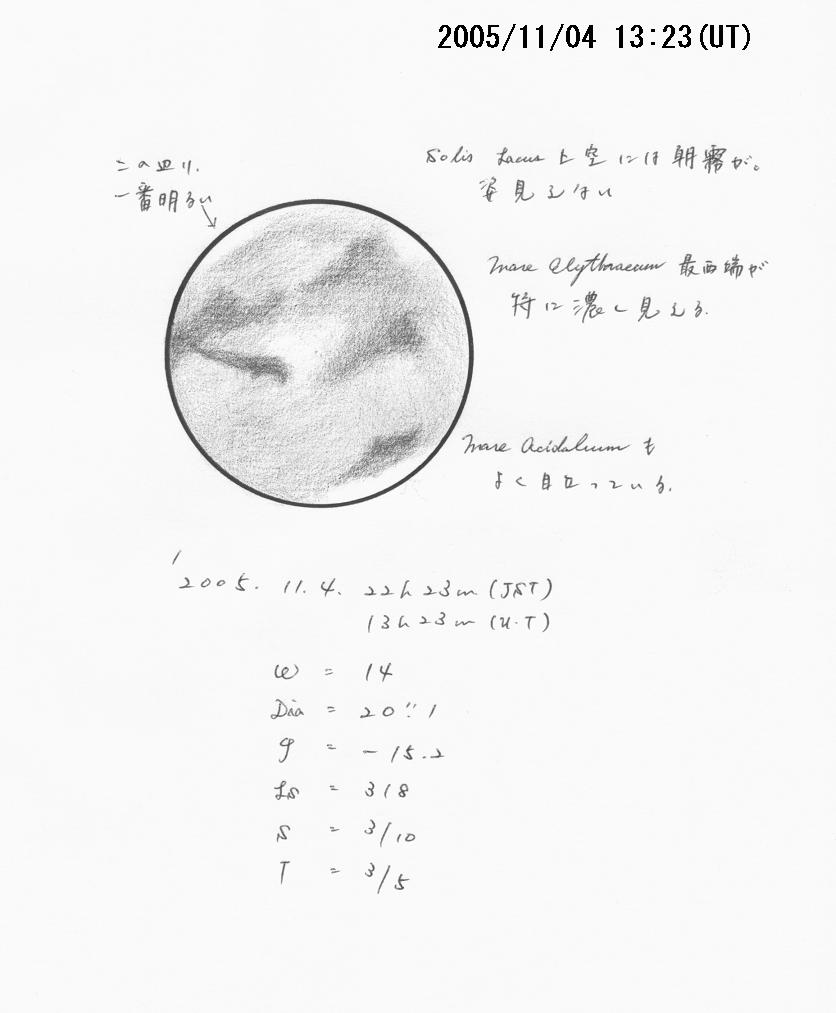 2005/11/04 13:23(UT)
この辺り、
一番明るい
Solis Lacus 上空には朝霧が。
姿見えない
Mare Elythraeum 最西端が
特に濃く見える。
Mare Acidalium も
よく目立っている。
2005. 11. 4. 22h 23m (JST)
13h 23m (U.T)
ω = 14
Dia = 20″.1
φ = -15.2
Ls = 318
S = 3/10
T = 3/5